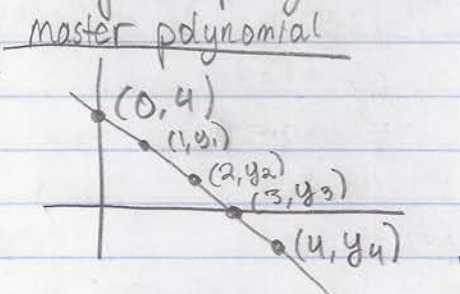 master polynomial
(0,4)
(1,y₁)
(2,y₂)
(3,y₃)
(4,y₄)